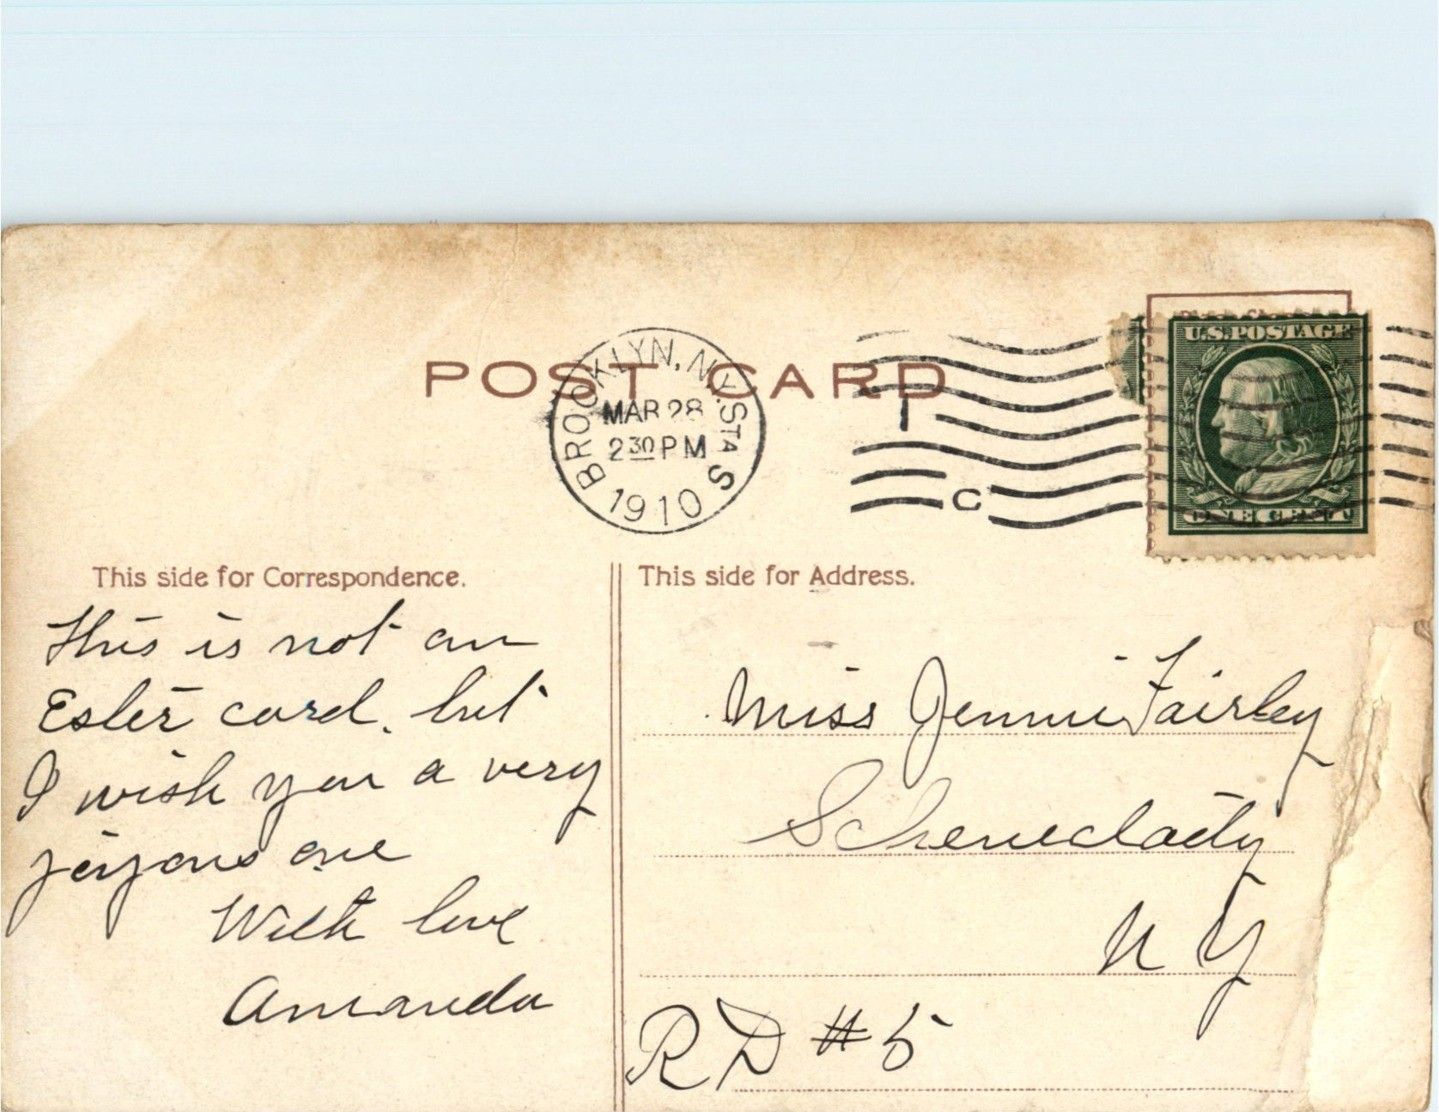 POST CARD
BROOKLYN, N.Y. STA S
MAR 28
2 30 PM
1910
C
U.S. POSTAGE
ONE CENT
This side for Correspondence.
This is not an
Ester card, but
I wish you a very
joyous one
With love
Amanda
This side for Address.
Miss Jennie Fairley
Schenectady
N Y
RD #5